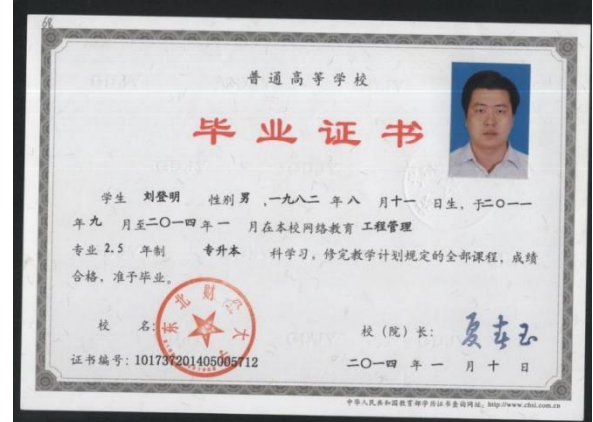 68
普通高等学校
毕业证书
学生 刘登明 性别 男 ,一九八二 年 八 月 十一 日生, 于二〇一一
年 九 月至二〇一四 年 一 月在本校网络教育 工程管理
专业 2.5 年制 专升本 科学习, 修完教学计划规定的全部课程, 成绩
合格, 准予毕业。
东北财经大学
校 名:
校 (院) 长: 夏春玉
证书编号: 101737201405005712
二〇一四 年 一 月 十 日
中华人民共和国教育部学历证书查询网址: http://www.chsi.com.cn